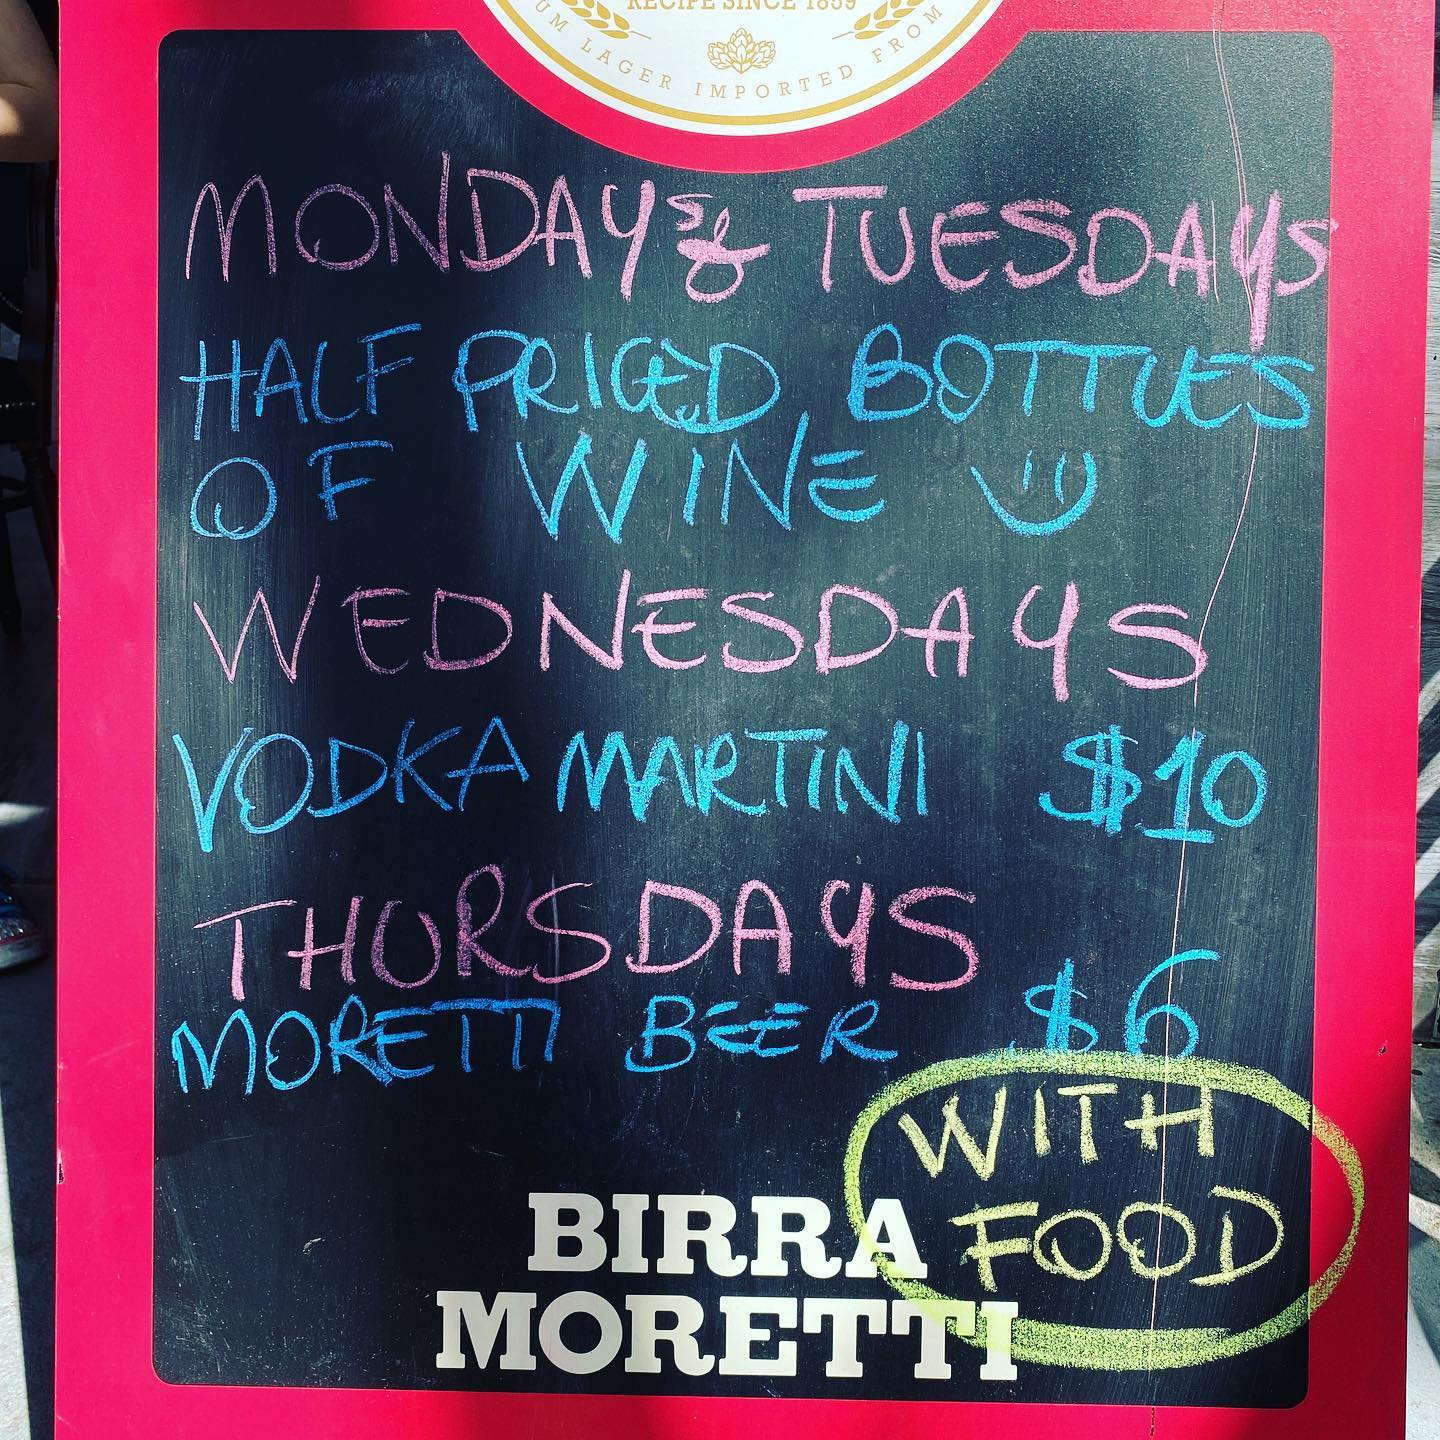 RECIPE SINCE 1859
UM LAGER IMPORTED FROM
MONDAYS & TUESDAYS
HALF PRICED BOTTLES
OF WINE
WEDNESDAYS
VODKA MARTINI $10
THURSDAYS
MORETTI BEER $6
WITH
FOOD
BIRRA
MORETTI